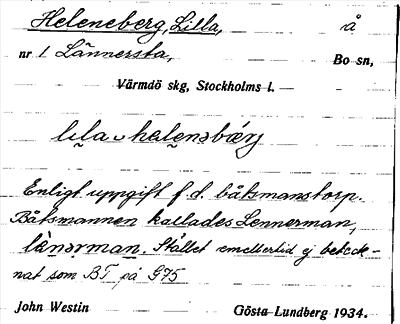 Heleneberg, Lilla, å
nr 1 Lännersta, Bo sn,
Värmdö skg, Stockholms l.
lıla helenəbærj
Enligt uppgift f.d. båtsmanstorp.
Båtsmannen kallades Lennerman,
länərman. Stället emellertid ej beteck-
nat som BT på G75
John Westin Gösta Lundberg 1934.